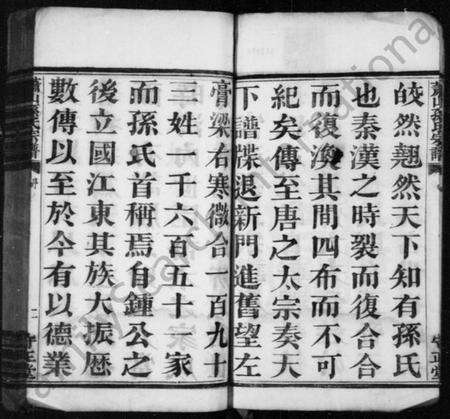 皎然翹然天下知有孫氏
也秦漢之時裂而復合合
而復渙其間四布而不可
紀矣傳至唐之太宗奏天
下譜牒退新門進舊望左
膏粱右寒微合一百九十
三姓一千六百五十一家
而孫氏首稱焉自鍾公之
後立國江東其族大振歷
數傳以至於今有以德業
蕭山孫氏宗譜
二
守正堂